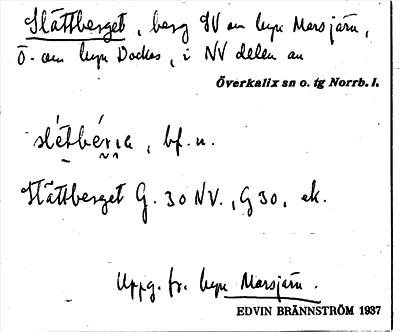 Slättberget, berg SV om byn Marsjärn,
ö. om byn Dockas, i NV delen av
Överkalix sn o. tg Norrb. l.
slétbérıa, bf. n.
Slättberget G. 30 NV., G 30, ek.
Uppg. fr. byn Marsjärn.
EDVIN BRÄNNSTRÖM 1937